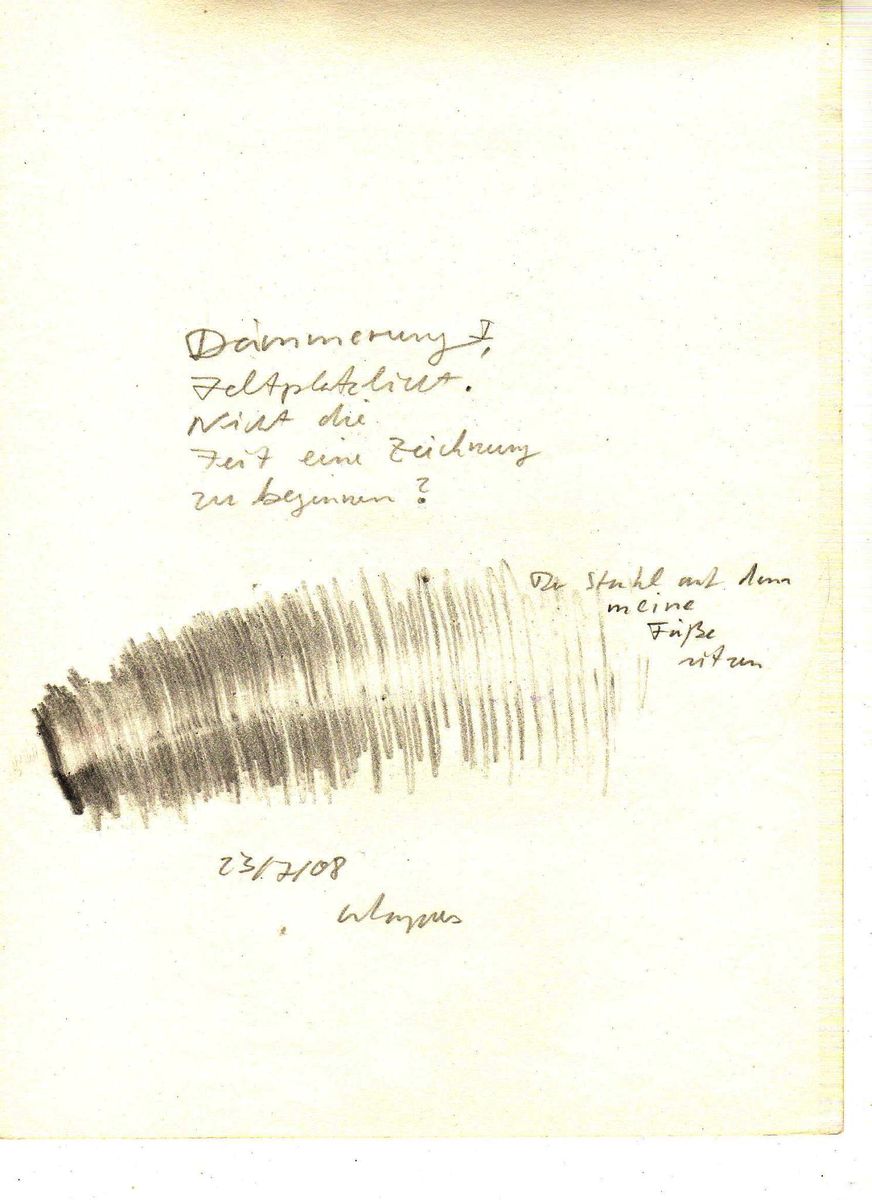 Dämmerung I,
Zeltplatzlicht.
Nicht die
Zeit eine Zeichnung
zu beginnen?
Der Stuhl auf dem
meine
Füße
sitzen
23/7/08